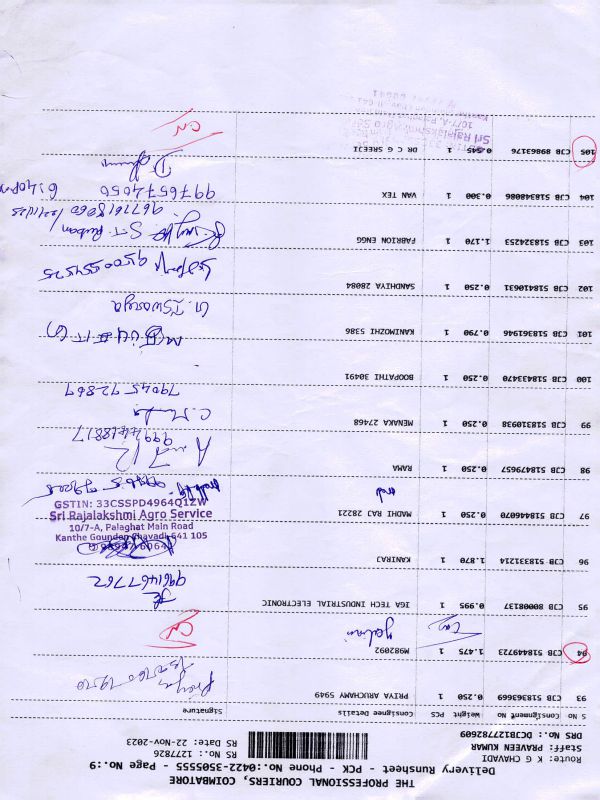 THE PROFESSIONAL COURIERS, COIMBATORE
Delivery Runsheet - PCK - Phone No.:0422-3505555 - Page No.:9
Route: K G CHAVADI
Staff: PRAVEEN KUMAR RS No.: 1277826
DRS No.: DCB12782609 RS Date: 22-Nov-2023
S No Consignment No Weight PCS Consignee Details Signature
93 CJB 518369669 0.250 1 PRIYA ARUCHAMY 5949
94 CJB 518449723 1.475 1 M982092
CN
95 CJB 80008137 0.995 1 IGA TECH INDUSTRIAL ELECTRONIC
9961467762
96 CJB 518331214 1.870 1 KANIRAJ
GSTIN: 33CSSPD4964Q1ZW
Sri Rajalakshmi Agro Service
10/7-A, Palaghat Main Road
Kanthe Goundan Chavadi-641 105
97 CJB 518446070 0.250 1 MADHI RAJ 28221
98 CJB 518479657 0.250 1 RAMA
99 CJB 518310938 0.250 1 MENAKA 27468
79045 92869
100 CJB 518433470 0.250 1 BOOPATHI 30491
101 CJB 518361946 0.790 1 KANIMOZHI 5386
G. ISwarya
102 CJB 518410631 0.250 1 SANDHIYA 28084
9500554525
103 CJB 518324253 1.170 1 FABRION ENGG
104 CJB 518348086 0.300 1 VAN TEX
9976574050
105 CJB 89863176 0.545 1 DR C G SREEJI
CN
Sri Rajalakshmi Agro